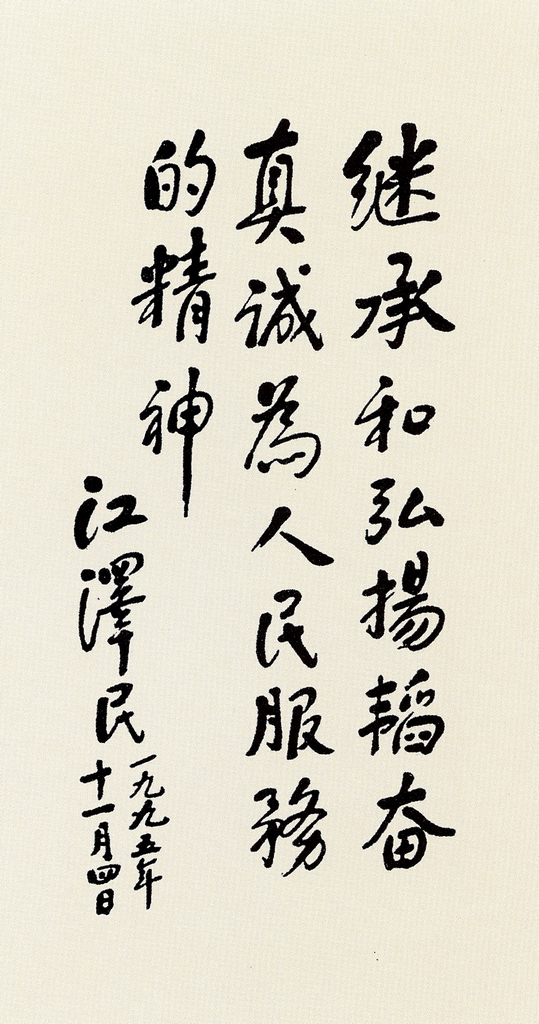 继承和弘揚韬奋
真诚為人民服務
的精神
江澤民
一九九五年
十一月四日